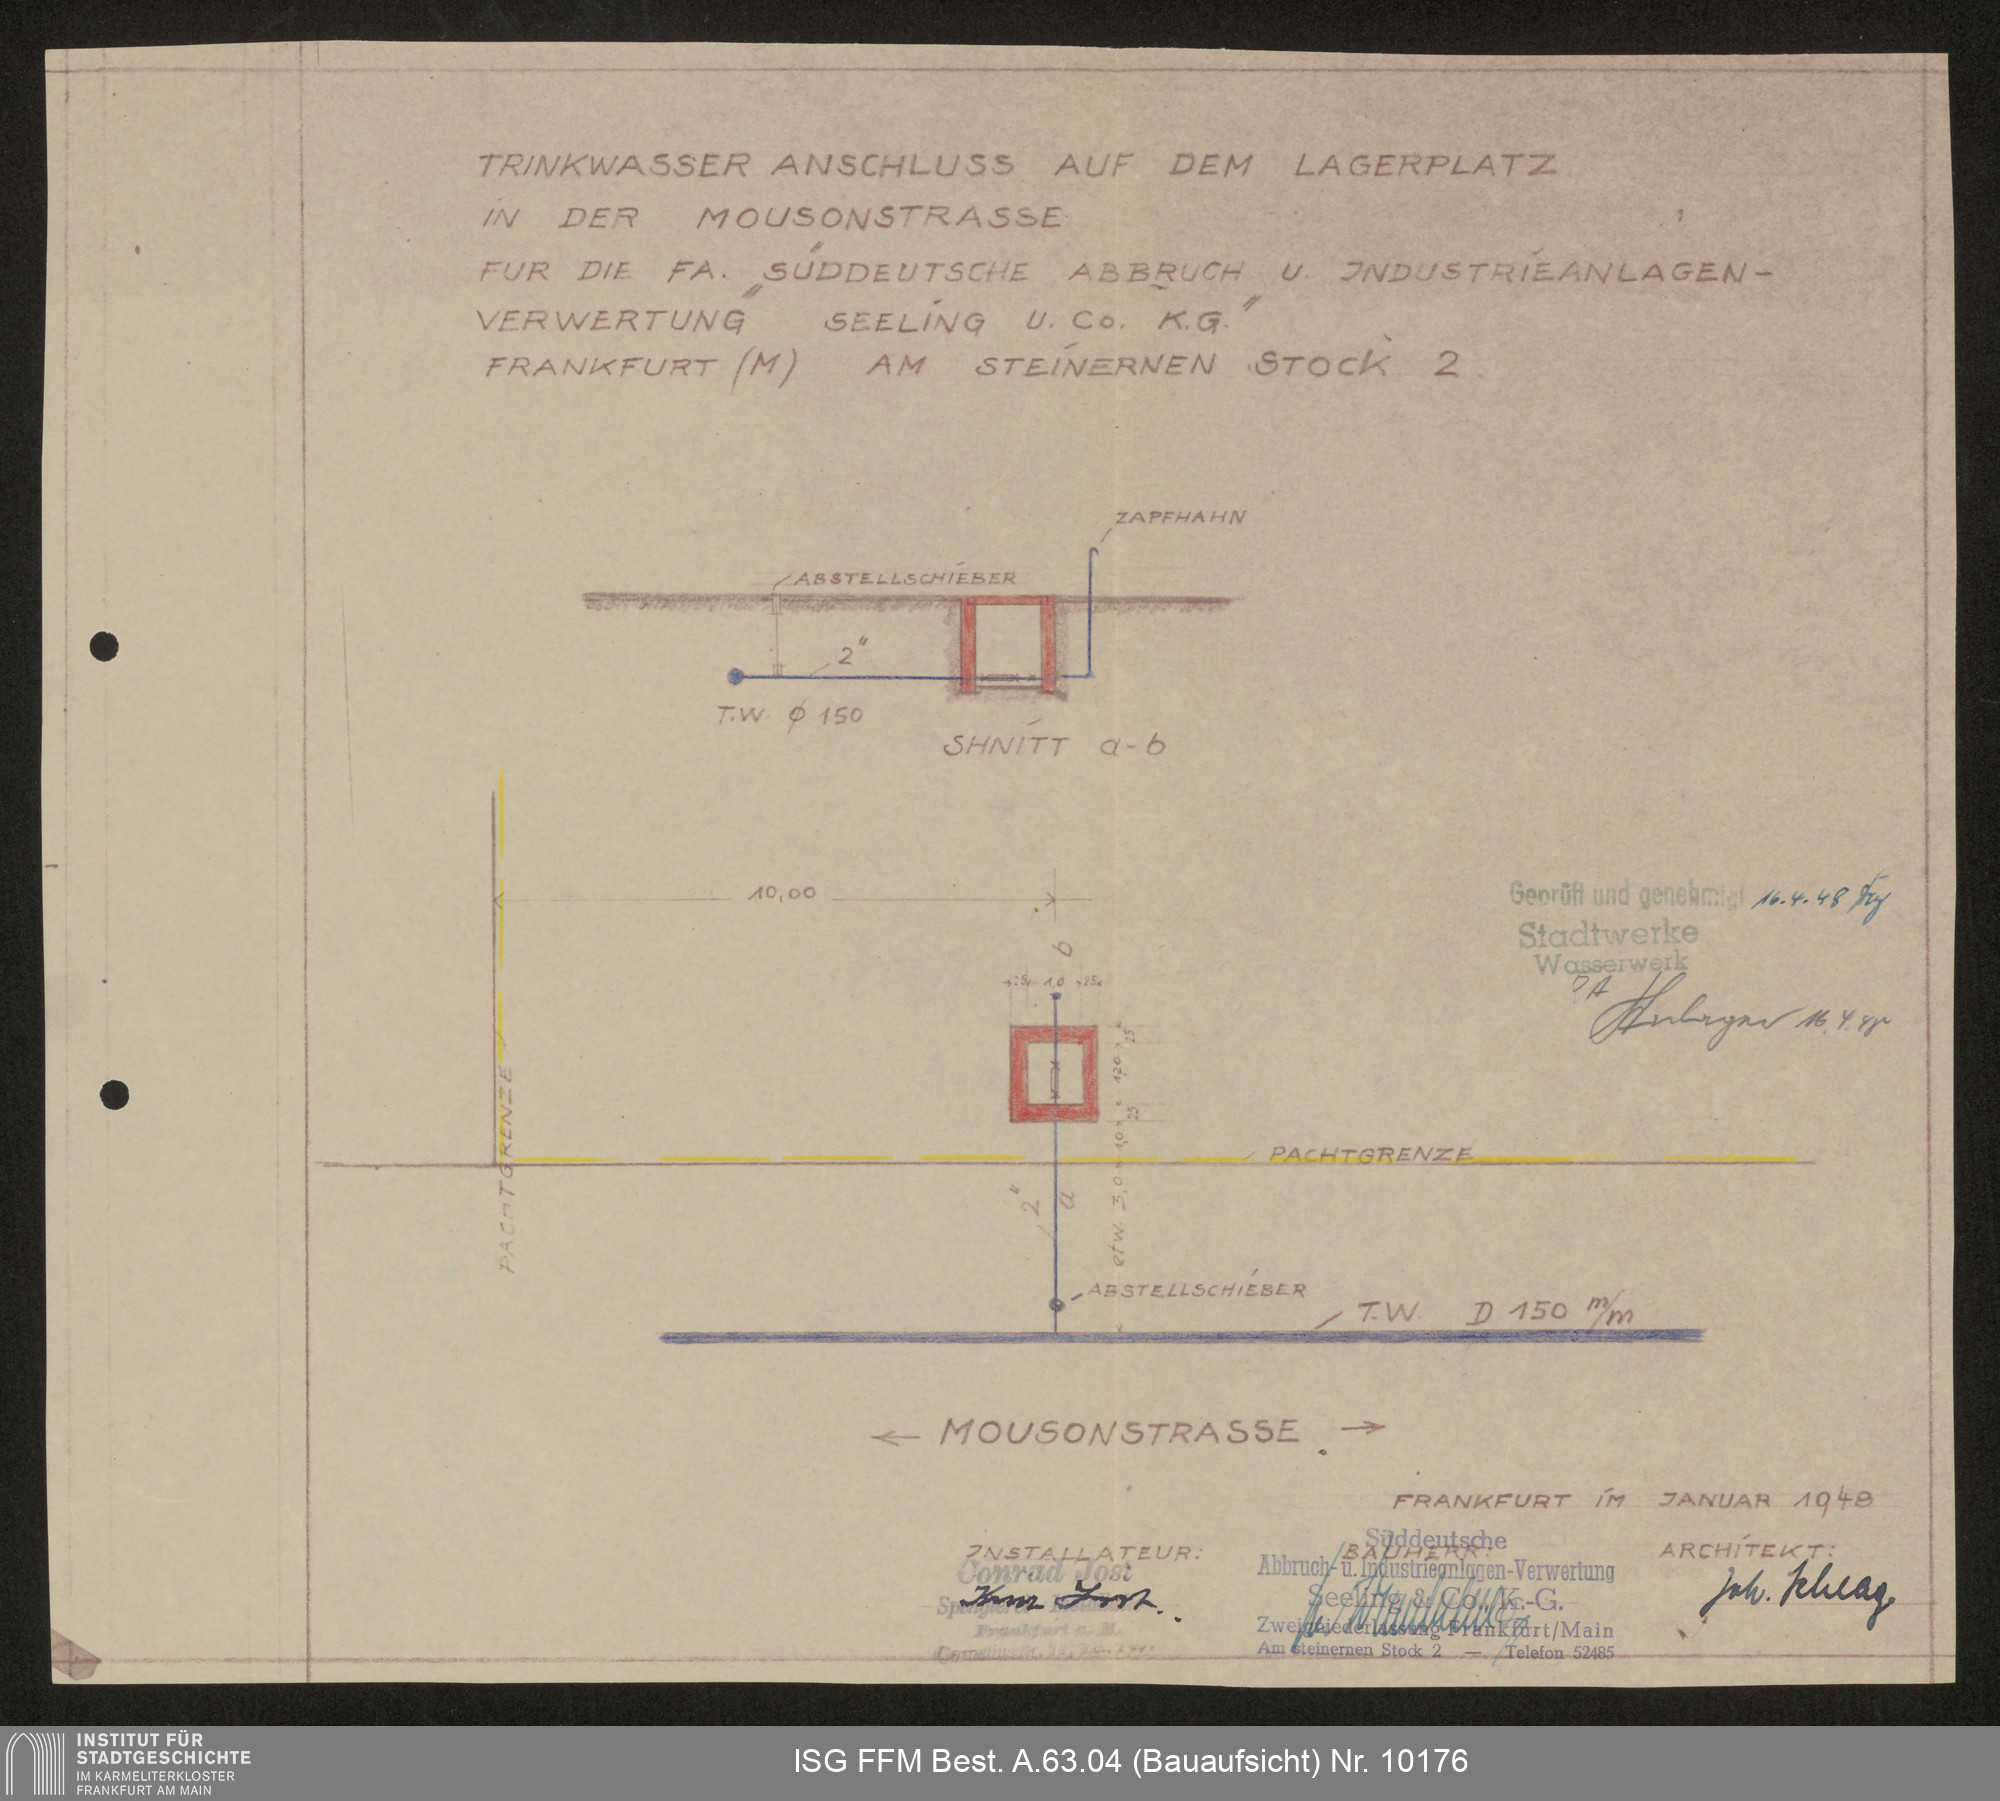 TRINKWASSER ANSCHLUSS AUF DEM LAGERPLATZ
IN DER MOUSONSTRASSE
FUR DIE FA. „SÜDDEUTSCHE ABBRUCH U. INDUSTRIEANLAGEN-
VERWERTUNG" SEELING U. Co. K.G."
FRANKFURT (M) AM STEINERNEN STOCK 2.
ZAPFHAHN
ABSTELLSCHIEBER
2"
T.W. ⌀ 150
SHNITT a-b
10,00
b
25 1,0 25
Geprüft und genehmigt 16.4.48
Stadtwerke
Wasserwerk
IA
16.4.48
25
1,20
25
1,0
PACHTGRENZE
PACHTGRENZE
2"
a
etw. 3,0
ABSTELLSCHIEBER
T.W. D 150 m/m
← MOUSONSTRASSE →
FRANKFURT IM JANUAR 1948
INSTALLATEUR:
Conrad Jost
Frankfurt a. M.
BAUHERR:
Süddeutsche
Abbruch- u. Industrieanlagen-Verwertung
Seeling & Co., K.-G.
Zweigniederlassung Frankfurt/Main
Am steinernen Stock 2 — Telefon 52485
ARCHITEKT:
Joh.
INSTITUT FÜR
STADTGESCHICHTE
IM KARMELITERKLOSTER
FRANKFURT AM MAIN
ISG FFM Best. A.63.04 (Bauaufsicht) Nr. 10176